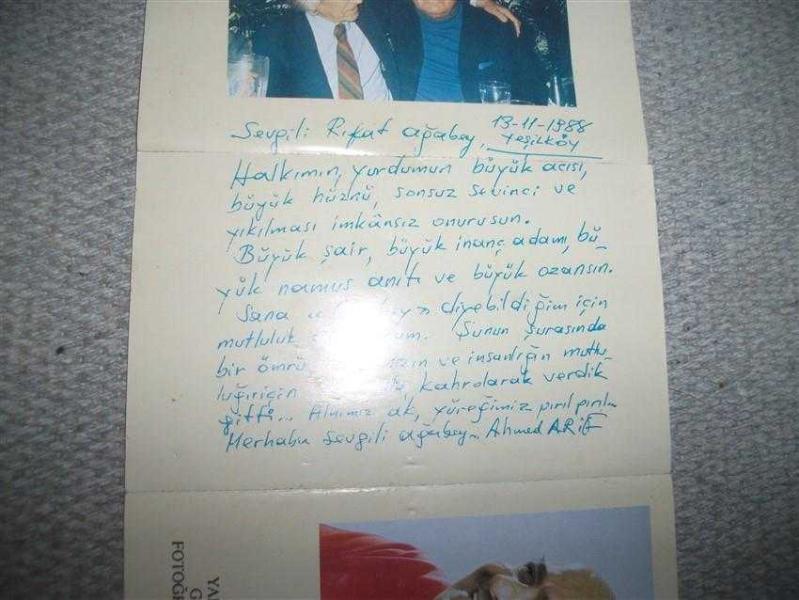 Sevgili Rıfat ağabey, 13-11-1988
Yeşilköy
Halkımın, yurdumun büyük acısı,
büyük hüznü, sonsuz sevinci ve
yıkılması imkânsız onurusun.
Büyük şair, büyük inanç adamı, bü-
yük namus anıtı ve büyük ozansın.
Sana diyebildiğim için
mutluluk Şunun şurasında
bir ömrü ve insanlığın mutlu-
luğu için kahrolarak verdik
gitti... Alnımız ak, yüreğimiz pırıl pırıl..
Merhaba sevgili ağabey.. Ahmed ARİF